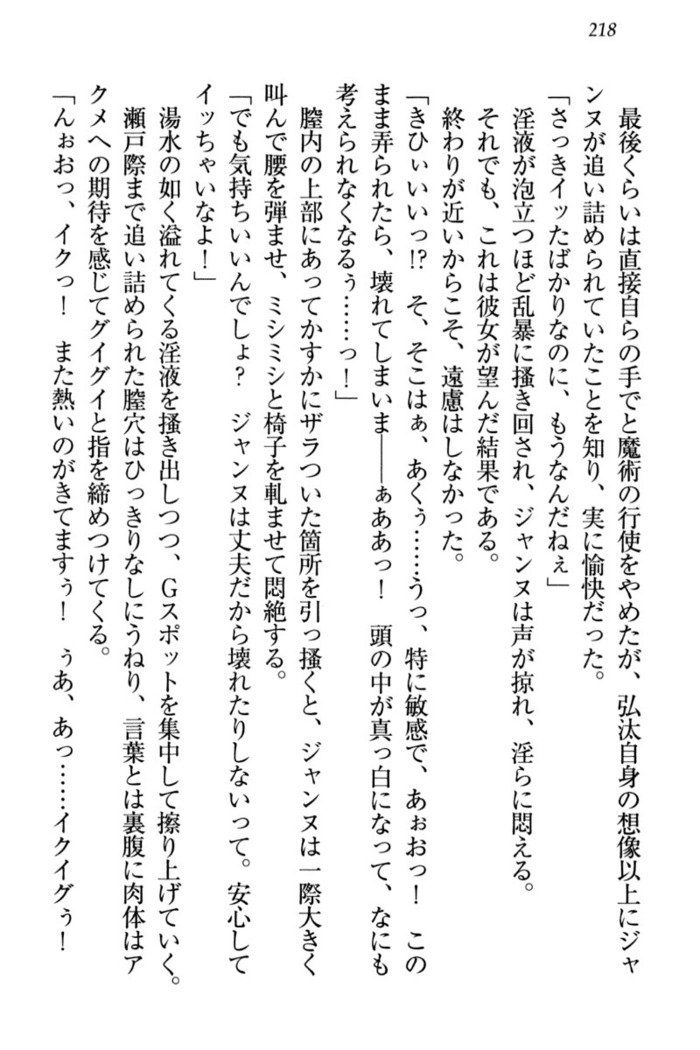 218
最後くらいは直接自らの手でと魔術の行使をやめたが、弘汰自身の想像以上にジャ
ンヌが追い詰められていたことを知り、実に愉快だった。
「さっきイッたばかりなのに、もうなんだねぇ」
淫液が泡立つほど乱暴に掻き回され、ジャンヌは声が掠れ、淫らに悶える。
それでも、これは彼女が望んだ結果である。
終わりが近いからこそ、遠慮はしなかった。
「きひぃいいいっ!?　そ、そこはぁ、あくぅ……うっ、特に敏感で、あぉおっ！　この
まま弄られたら、壊れてしまいま――ぁああっ！　頭の中が真っ白になって、なにも
考えられなくなるぅ……っ！」
膣内の上部にあってかすかにザラついた箇所を引っ掻くと、ジャンヌは一際大きく
叫んで腰を弾ませ、ミシミシと椅子を軋ませて悶絶する。
「でも気持ちいいんでしょ？　ジャンヌは丈夫だから壊れたりしないって。安心して
イッちゃいなよ！」
湯水の如く溢れてくる淫液を掻き出しつつ、Ｇスポットを集中して擦り上げていく。
瀬戸際まで追い詰められた膣穴はひっきりなしにうねり、言葉とは裏腹に肉体はア
クメへの期待を感じてグイグイと指を締めつけてくる。
「んぉおっ、イクっ！　また熱いのがきてますぅ！　ぅあ、あっ……イクイグぅ！